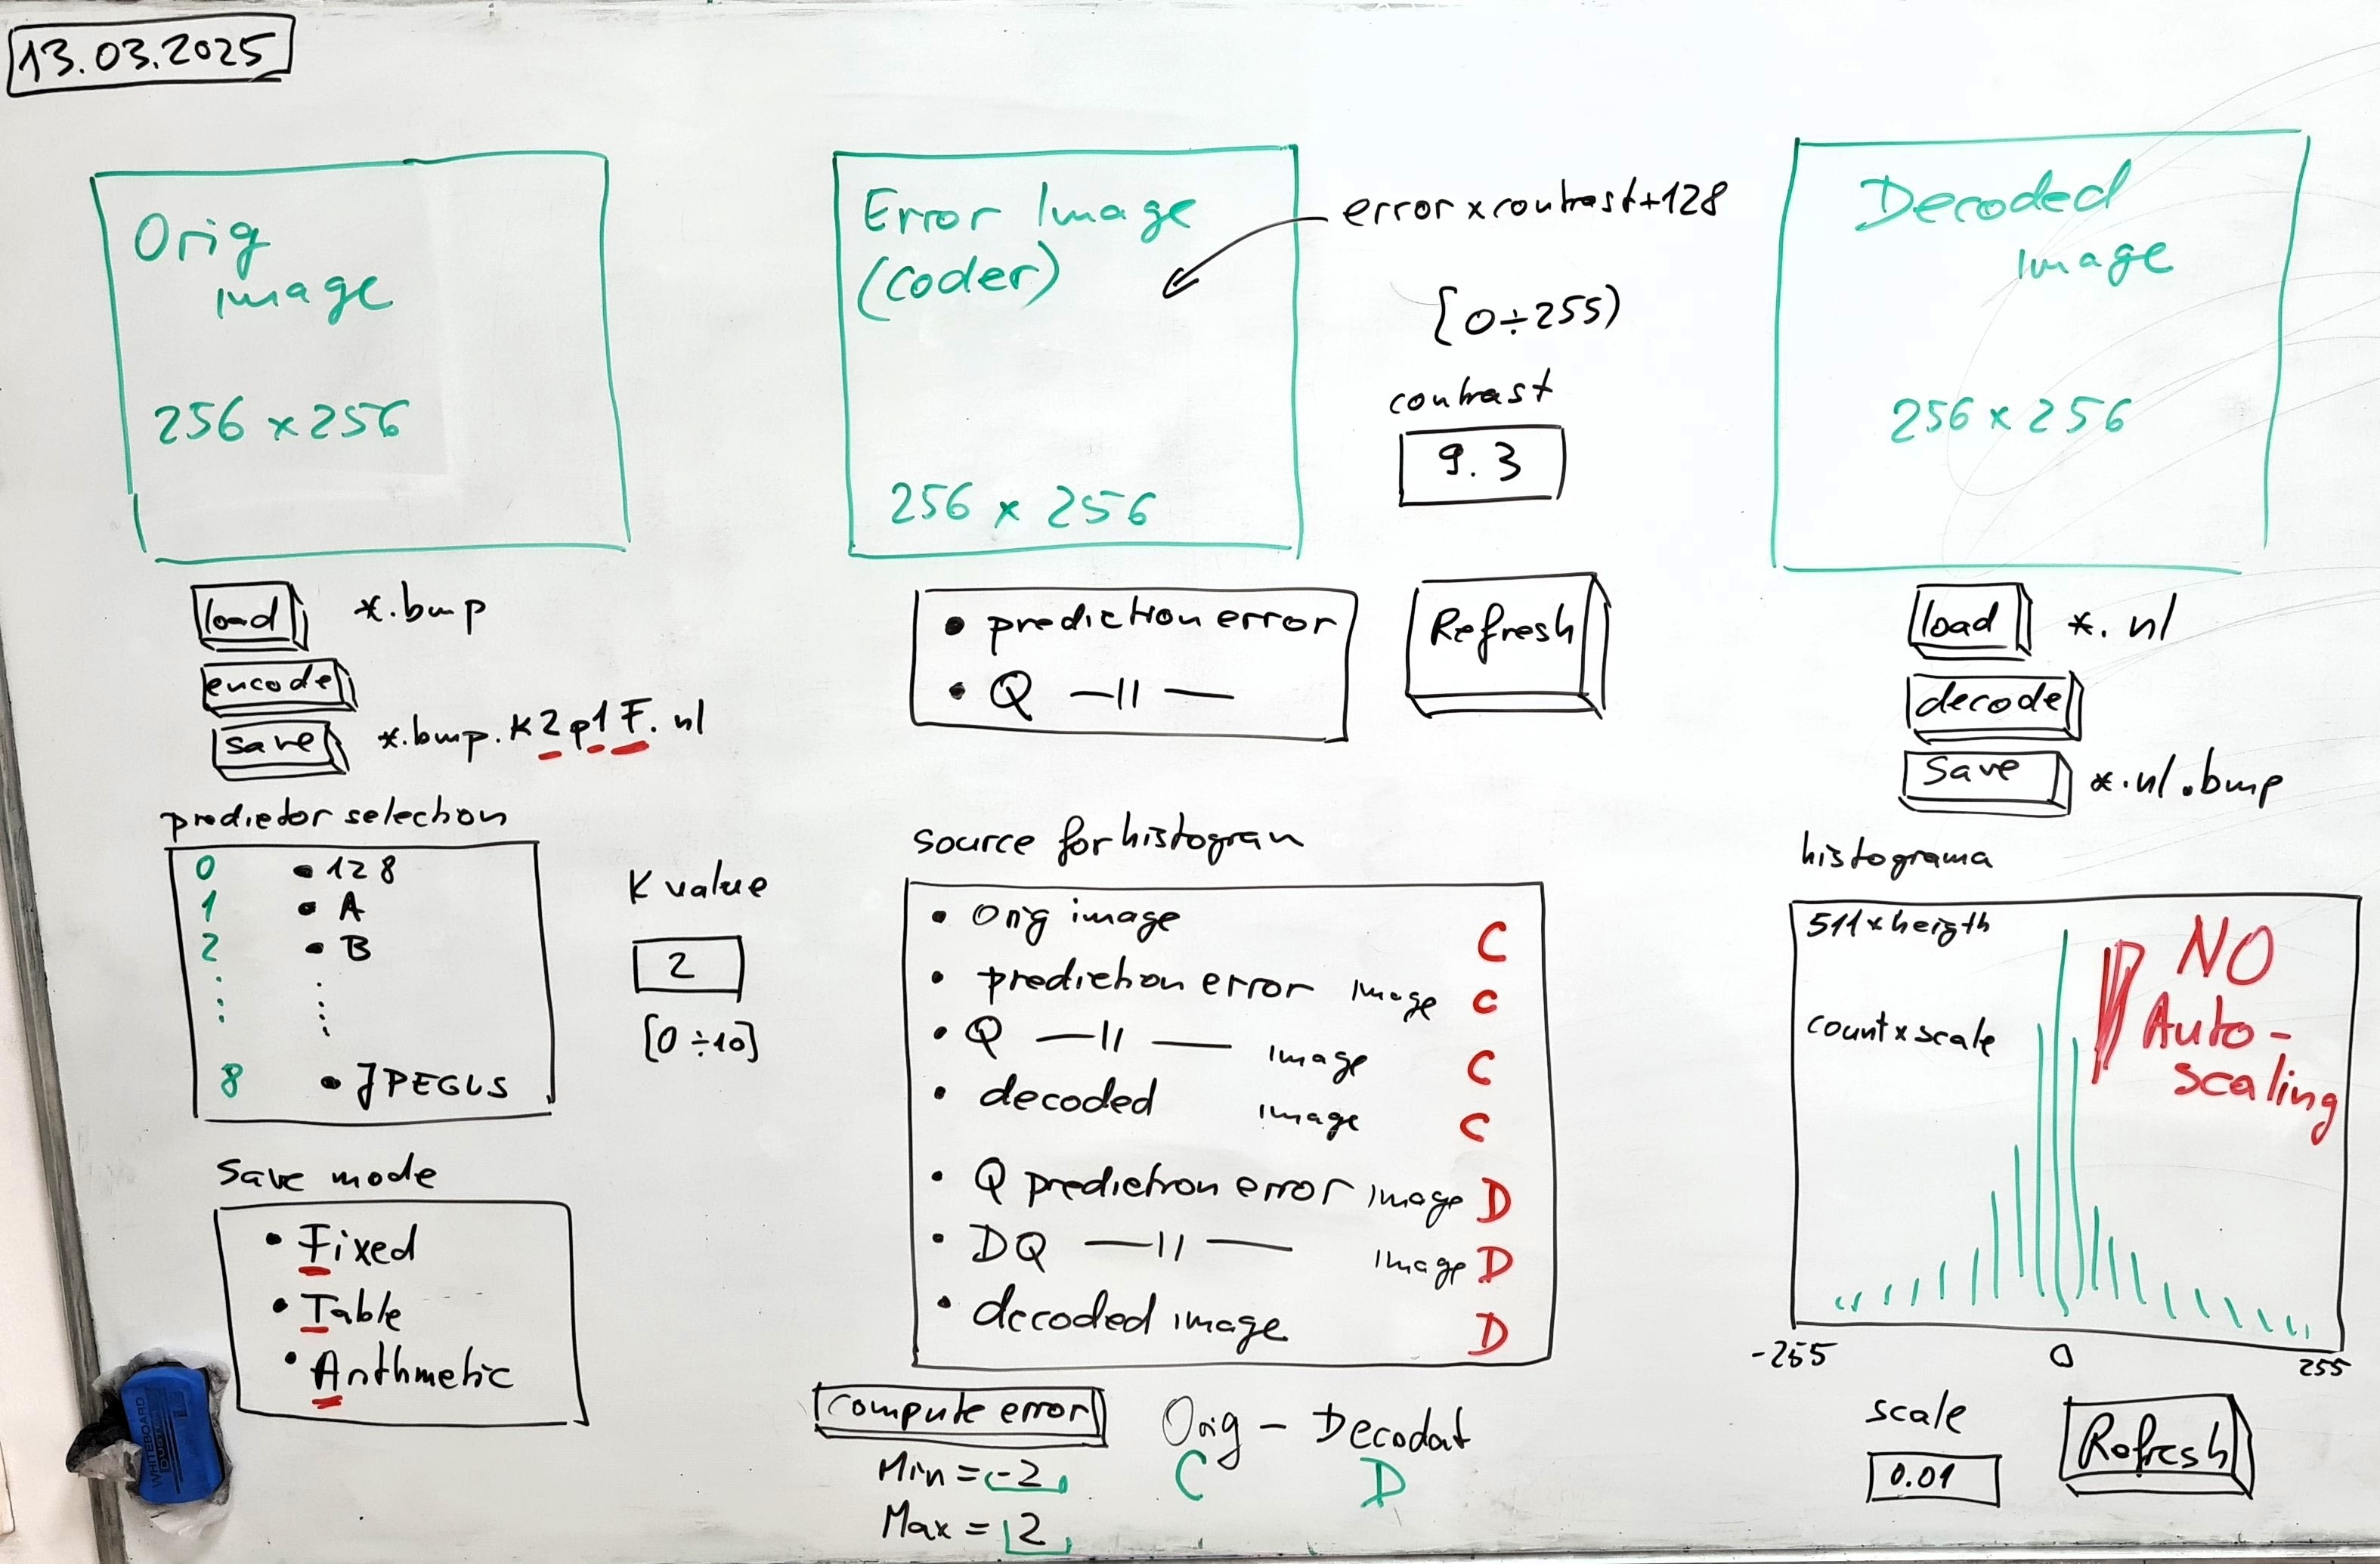 13.03.2025
Orig
image
256 x 256
load *.bmp
encode
save *.bmp.k2p1F.nl
predictor selection
0 • 128
1 • A
2 • B
8 • JPEGLS
K value
2
[0÷10]
Save mode
• Fixed
• Table
• Arithmetic
Error Image
(coder)
256 x 256
error x contrast+128
[0÷255)
contrast
9.3
• prediction error
• Q —||—
Refresh
source for histogran
• Orig image C
• prediction error image C
• Q —||— image C
• decoded image C
• Q prediction error image D
• DQ —||— image D
• decoded image D
compute error Orig - Decodat
C D
Min = -2
Max = 2
Decoded
image
256 x 256
load *.nl
decode
Save *.nl.bmp
histograma
511 x heigth
count x scale
NO
Auto-
scaling
-255 0 255
scale
0.01
Refresh
WHITEBOARD